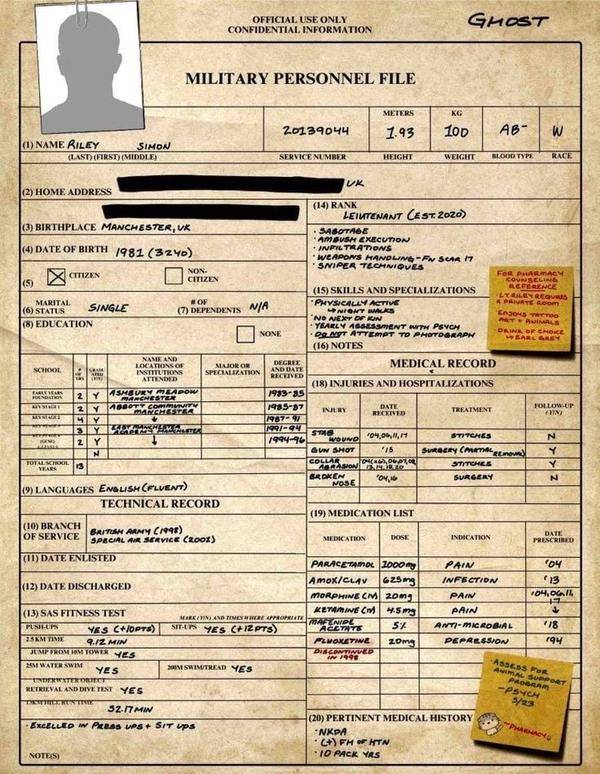 OFFICIAL USE ONLY
CONFIDENTIAL INFORMATION
GHOST
MILITARY PERSONNEL FILE
METERS
KG
20139044
1.93
100
AB-
W
(1) NAME RILEY SIMON
(LAST) (FIRST) (MIDDLE)
SERVICE NUMBER
HEIGHT
WEIGHT
BLOOD TYPE
RACE
(2) HOME ADDRESS UK
(3) BIRTHPLACE MANCHESTER, UK
(4) DATE OF BIRTH 1981 (3240)
(5) CITIZEN
NON-CITIZEN
MARITAL
(6) STATUS SINGLE
# OF
(7) DEPENDENTS N/A
(8) EDUCATION
NONE
SCHOOL
# OF YRS
GRADUATED (Y/N)
NAME AND LOCATIONS OF INSTITUTIONS ATTENDED
MAJOR OR SPECIALIZATION
DEGREE AND DATE RECEIVED
EARLY YEARS FOUNDATION 2 Y ASHBURY MEADOW MANCHESTER 1983-85
KEY STAGE 1 2 Y ABBOTT COMMUNITY MANCHESTER 1985-87
KEY STAGE 2 4 Y ↓ 1987-91
3 Y EAST MANCHESTER ACADEMY MANCHESTER 1991-94
(GCSE) 2 Y ↓ 1994-96
N
TOTAL SCHOOL YEARS 13
(9) LANGUAGES ENGLISH (FLUENT)
TECHNICAL RECORD
(10) BRANCH OF SERVICE
BRITISH ARMY (1998)
SPECIAL AIR SERVICE (2001)
(11) DATE ENLISTED
(12) DATE DISCHARGED
(13) SAS FITNESS TEST
MARK (Y/N) AND TIMES WHERE APPROPRIATE
PUSH-UPS YES (+10PTS) SIT-UPS YES (+12PTS)
2.5 KM TIME 9.12 MIN
JUMP FROM 10M TOWER YES
25M WATER SWIM YES 200M SWIM/TREAD YES
UNDERWATER OBJECT
RETRIEVAL AND DIVE TEST YES
HILL RUN TIME 52.17 MIN
· EXCELLED IN PRESS UPS + SIT UPS
NOTE(S)
(14) RANK
LEIUTENANT (EST. 2020)
· SABOTAGE
· AMBUSH EXECUTION
· INFILTRATIONS
· WEAPONS HANDLING - FN SCAR 17
· SNIPER TECHNIQUES
(15) SKILLS AND SPECIALIZATIONS
· PHYSICALLY ACTIVE
↳ NIGHT WALKS
· NO NEXT OF KIN
· YEARLY ASSESSMENT WITH PSYCH
· DO NOT ATTEMPT TO PHOTOGRAPH
(16) NOTES
FOR PHARMACY
COUNSELING
REFERENCE
· LT. RILEY REQUIRES
A PRIVATE ROOM
ENJOYS TATTOO
ART + ANIMALS
DRINK OF CHOICE
↳ EARL GREY
MEDICAL RECORD
(18) INJURIES AND HOSPITALIZATIONS
INJURY
DATE RECEIVED
TREATMENT
FOLLOW-UP (Y/N)
STAB WOUND '04,09,11,17 STITCHES N
GUN SHOT '15 SURGERY (PARTIAL REMOVAL) Y
COLLAR ABRASION STITCHES Y
BROKEN NOSE '04,16 SURGERY N
(19) MEDICATION LIST
MEDICATION
DOSE
INDICATION
DATE PRESCRIBED
PARACETAMOL 1000mg PAIN '04
AMOX/CLAV 625mg INFECTION '13
MORPHINE (M) 20mg PAIN '04,06,11,17
KETAMINE (M) 4.5mg PAIN ↓
MAFENIDE ACETATE 5% ANTI-MICROBIAL '18
FLUOXETINE 20mg DEPRESSION '94
DISCONTINUED
IN 1998
· ASSESS FOR
ANIMAL SUPPORT
PROGRAM
- PSYCH
5/23
~PHARMACY
(20) PERTINENT MEDICAL HISTORY
· NKDA
· (+) FH OF HTN
· 10 PACK YRS